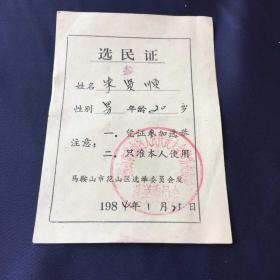 选民证
姓名 宋贤顺
性别 男 年龄 20 岁
注意：
一、凭证参加选举
二、只准本人使用
马鞍山市花山区选举委员会发
1984年1月21日